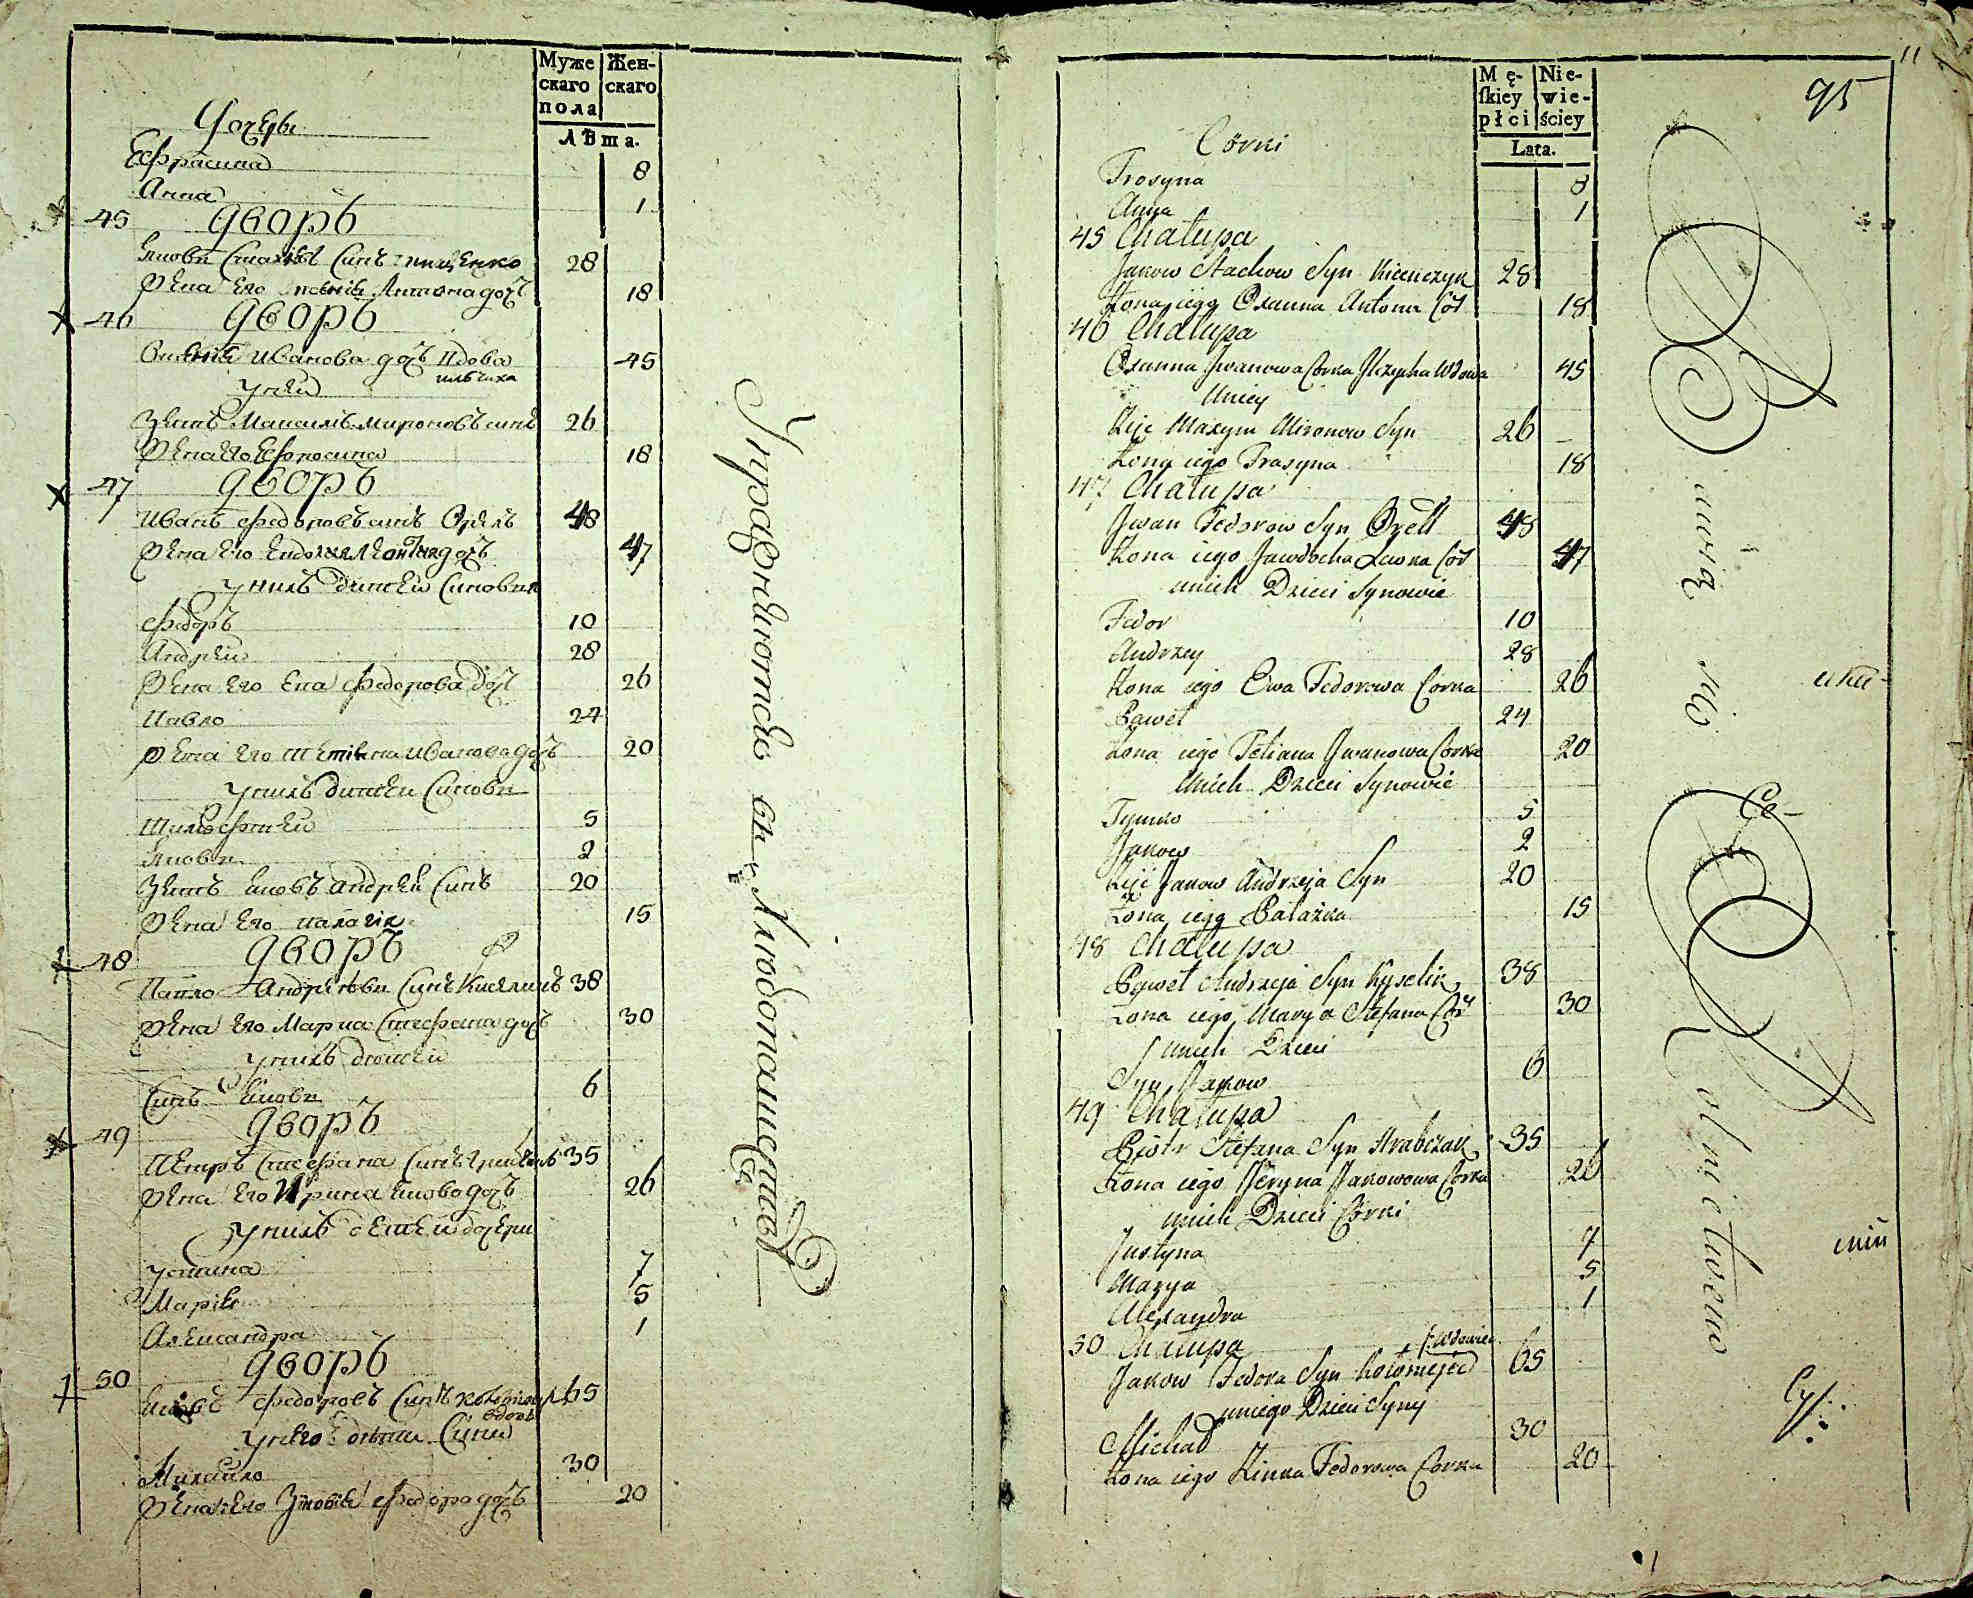 Муже скаго пола
Жен- скаго
Лѣта.
Дочеры
Ефрасина 8
Анна 1
45 Дворъ
Яковъ Стаховъ Синъ 28
Жена Его Антона дочъ 18
46 Дворъ
Иванова дочъ вдова 45
У неи
Зять Максимъ Мироновъ синъ 26
Жена Его Ефросина 18
47 Дворъ
Иванъ Федоровъ синъ Орелъ 48
Жена Его Евдокия Леонтия дочъ 47
У нихъ дитеи Синовья
Федоръ 10
Андреи 28
Жена Его Ева Федорова дочъ 26
Павло 24
Жена Его Тетіяна Иванова дочъ 20
У нихъ дитеи Синовя
Тимофтеи 5
Яковъ 2
Зять Яковъ Андреи Синъ 20
Жена Его Палагія 15
48 Дворъ
Павло Андреевъ Синъ Киселикъ 38
Жена Его Мария Стефана дочъ 30
У нихъ дитеи
Синъ Яковъ 6
49 Дворъ
Петръ Стефана Синъ 35
Жена Его Ирина Якова дочъ 26
У нихъ детеи дочери
Устина 7
Марія 5
Александра 1
50 Дворъ
Яковъ Федоровъ Синъ 65
вдовъ
У него дѣти Сини
Михаило 30
Жена Его Зіновія Федора дочъ 20
Упражняются въ хлебопашестве
Mę- ſkiey płci
Nie- wie- ściey
Lata.
11
95
Córki
Frosyna 8
Anna 1
45 Chałupa
Jakow Stachow Syn 28
Żona iego Oxanna Antona Cór 18
46 Chałupa
Oxanna Jwanowa Córka Wdowa 45
Uniey
Zięć Maxym Mironow Syn 26
Żona iego Frasyna 18
47 Chałupa
Jwan Fedorow Syn Orell 48
Żona iego Jawdocha Lewka Cór 47
unich Dzieci Synowie
Fedor 10
Andrzey 28
Żona iego Ewa Fedorowa Corka 26
Paweł 24
Żona iego Tetiana Jwanowa Corka 20
Unich Dzieci Synowie
Tymko 5
Jakow 2
Zięć Jakow Andrzeja Syn 20
Żona iego Pałażka 15
48 Chałupa
Paweł Andrzeja Syn Kyselik 38
Żona iego Marya Stefana Cór 30
unich Dzieci
Syn Jakow 6
49 Chałupa
Piotr Stefana Syn Hrabczak 35
Żona iego Heryna Jakowowa Córka 26
unich Dzieci Córki
Justyna 7
Marya 5
Alexandra 1
50 Chałupa
Wdowiec
Jakow Fedora Syn Kołomejec 65
uniego Dzieci Syny
Michał 30
Żona iego Zinka Fedorowa Corka 20
Bawią się Rolnictwem